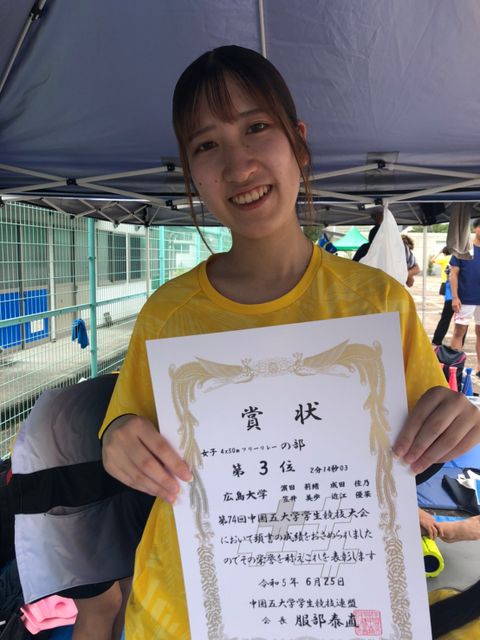 賞状
女子 4x50mフリーリレーの部
第3位 2分14秒03
広島大学 濱田 莉緒 成田 佳乃
笠井 美歩 近江 優菜
第74回中国五大学学生競技大会
において頭書の成績をおさめられました
のでその栄誉を称えこれを表彰します
令和5年6月25日
中国五大学学生競技連盟
会長 服部泰直